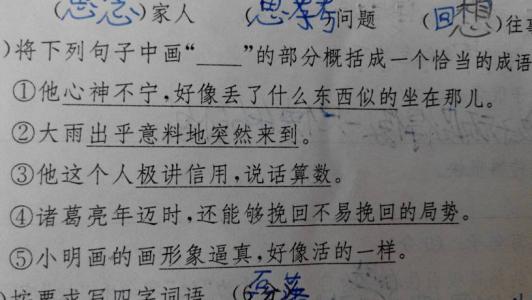 (思念)家人 (思考)问题 (回想)往事
)将下列句子中画“____”的部分概括成一个恰当的成语
①他心神不宁,好像丢了什么东西似的坐在那儿。
②大雨出乎意料地突然来到。
③他这个人极讲信用,说话算数。
④诸葛亮年迈时,还能够挽回不易挽回的局势。
⑤小明画的画形象逼真,好像活的一样。
按要求写四字词语